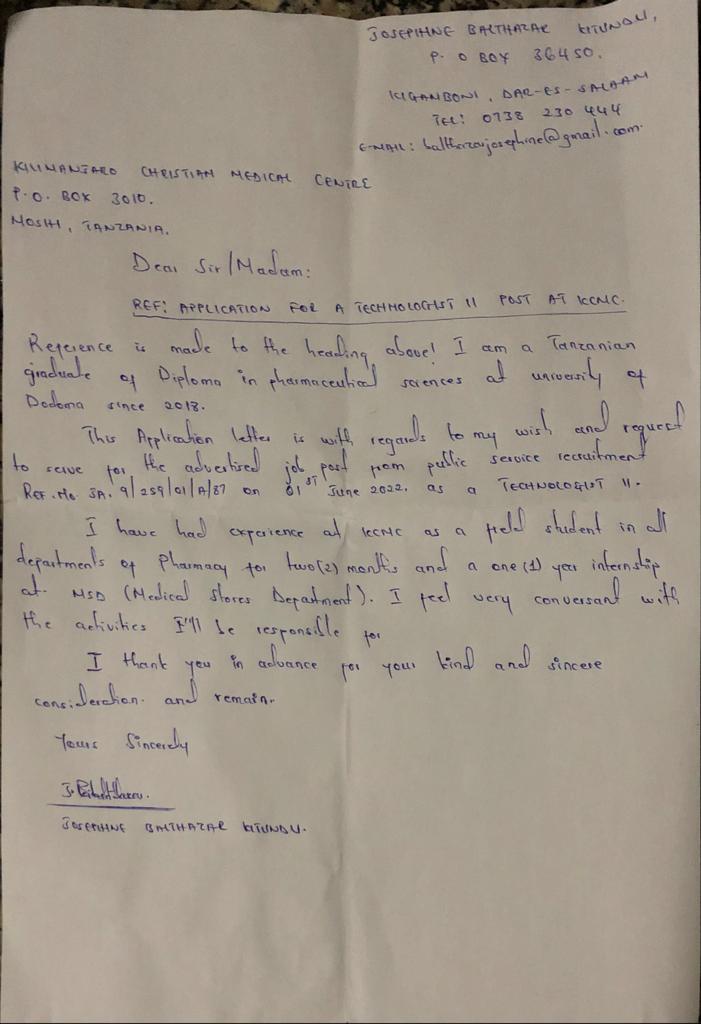 JOSEPHINE BALTHAZAR KITUNDU,
P. O BOX 36450.
KIGAMBONI, DAR-ES-SALAAM
TEL: 0738 230 444
E-MAIL: balthazarjosephine@gmail.com.
KILIMANJARO CHRISTIAN MEDICAL CENTRE
P.O. BOX 3010.
MOSHI, TANZANIA.
Dear Sir/Madam:
REF: APPLICATION FOR A TECHNOLOGIST II POST AT KCMC.
Reference is made to the heading above! I am a Tanzanian
graduate of Diploma in pharmaceutical sciences at university of
Dodoma since 2018.
This Application letter is with regards to my wish and request
to serve for the advertised job post from public service recruitment
REF. No. JA. 9/259/01/A/87 on 01ST June 2022. as a TECHNOLOGIST II.
I have had experience at KCMC as a field student in all
departments of Pharmacy for two(2) months and a one (1) year internship
at MSD (Medical Stores Department). I feel very conversant with
the activities I'll be responsible for
I thank you in advance for your kind and sincere
consideration. and remain.
Yours Sincerely
JOSEPHINE BALTHAZAR KITUNDU.